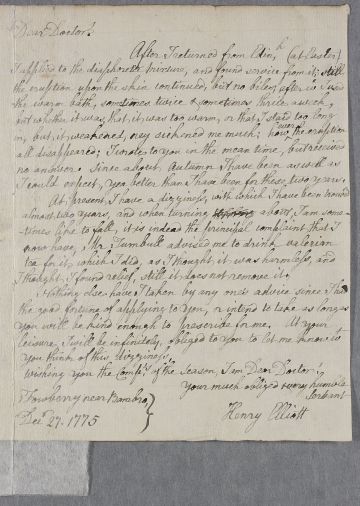 Dear Doctor.
After I returned from Edinr. (at Easter)
I applied to the diaphoretic mixture, and found service from it; still
the eruption upon the skin continued, but no boles; after wch I used
the warm bath, sometimes twice & sometimes thrice a week,
not whither it was, that it was too warm, or that I staid too long
in, but it weakened, nay sickened me much; how the eruption
all disappeared; I wrote to you in the mean time, but received
no answer. Since about Autumn I have been as well as
I could expect, yea better than I have been for these two years.
At present I have a dizziness, with which I have been troubled
almost two years, and when turning about, I am some-
-times like to fall, it is indeed the principal complaint that I
now have, Mr. Turnbull advised me to drink valerian
tea for it, which I did, as I thought it was harmless, and
I thought I found relief, still it does not remove it.
Nothing else have I taken by any ones advice since I had
the good fortune of applying to You, nor intend to take as long as
you will be kind enough to prescribe for me. At your
leisure, I will be infinitely obliged to you to let me know wt
you think of this dizziness.
Wishing you the Compts. of the Season, I am Dear Doctor,
Your much obliged & very humble
Servant
Henry Elliott
Fowberry near
Decr. 27. 1775